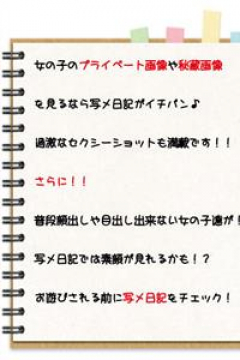 女の子のプライベート画像や秘蔵画像
を見るなら写メ日記がイチバン♪
過激なセクシーショットも満載です！！
さらに！！
普段顔出しや目出し出来ない女の子達が！
写メ日記では素顔が見れるかも！？
お遊びされる前に写メ日記をチェック！